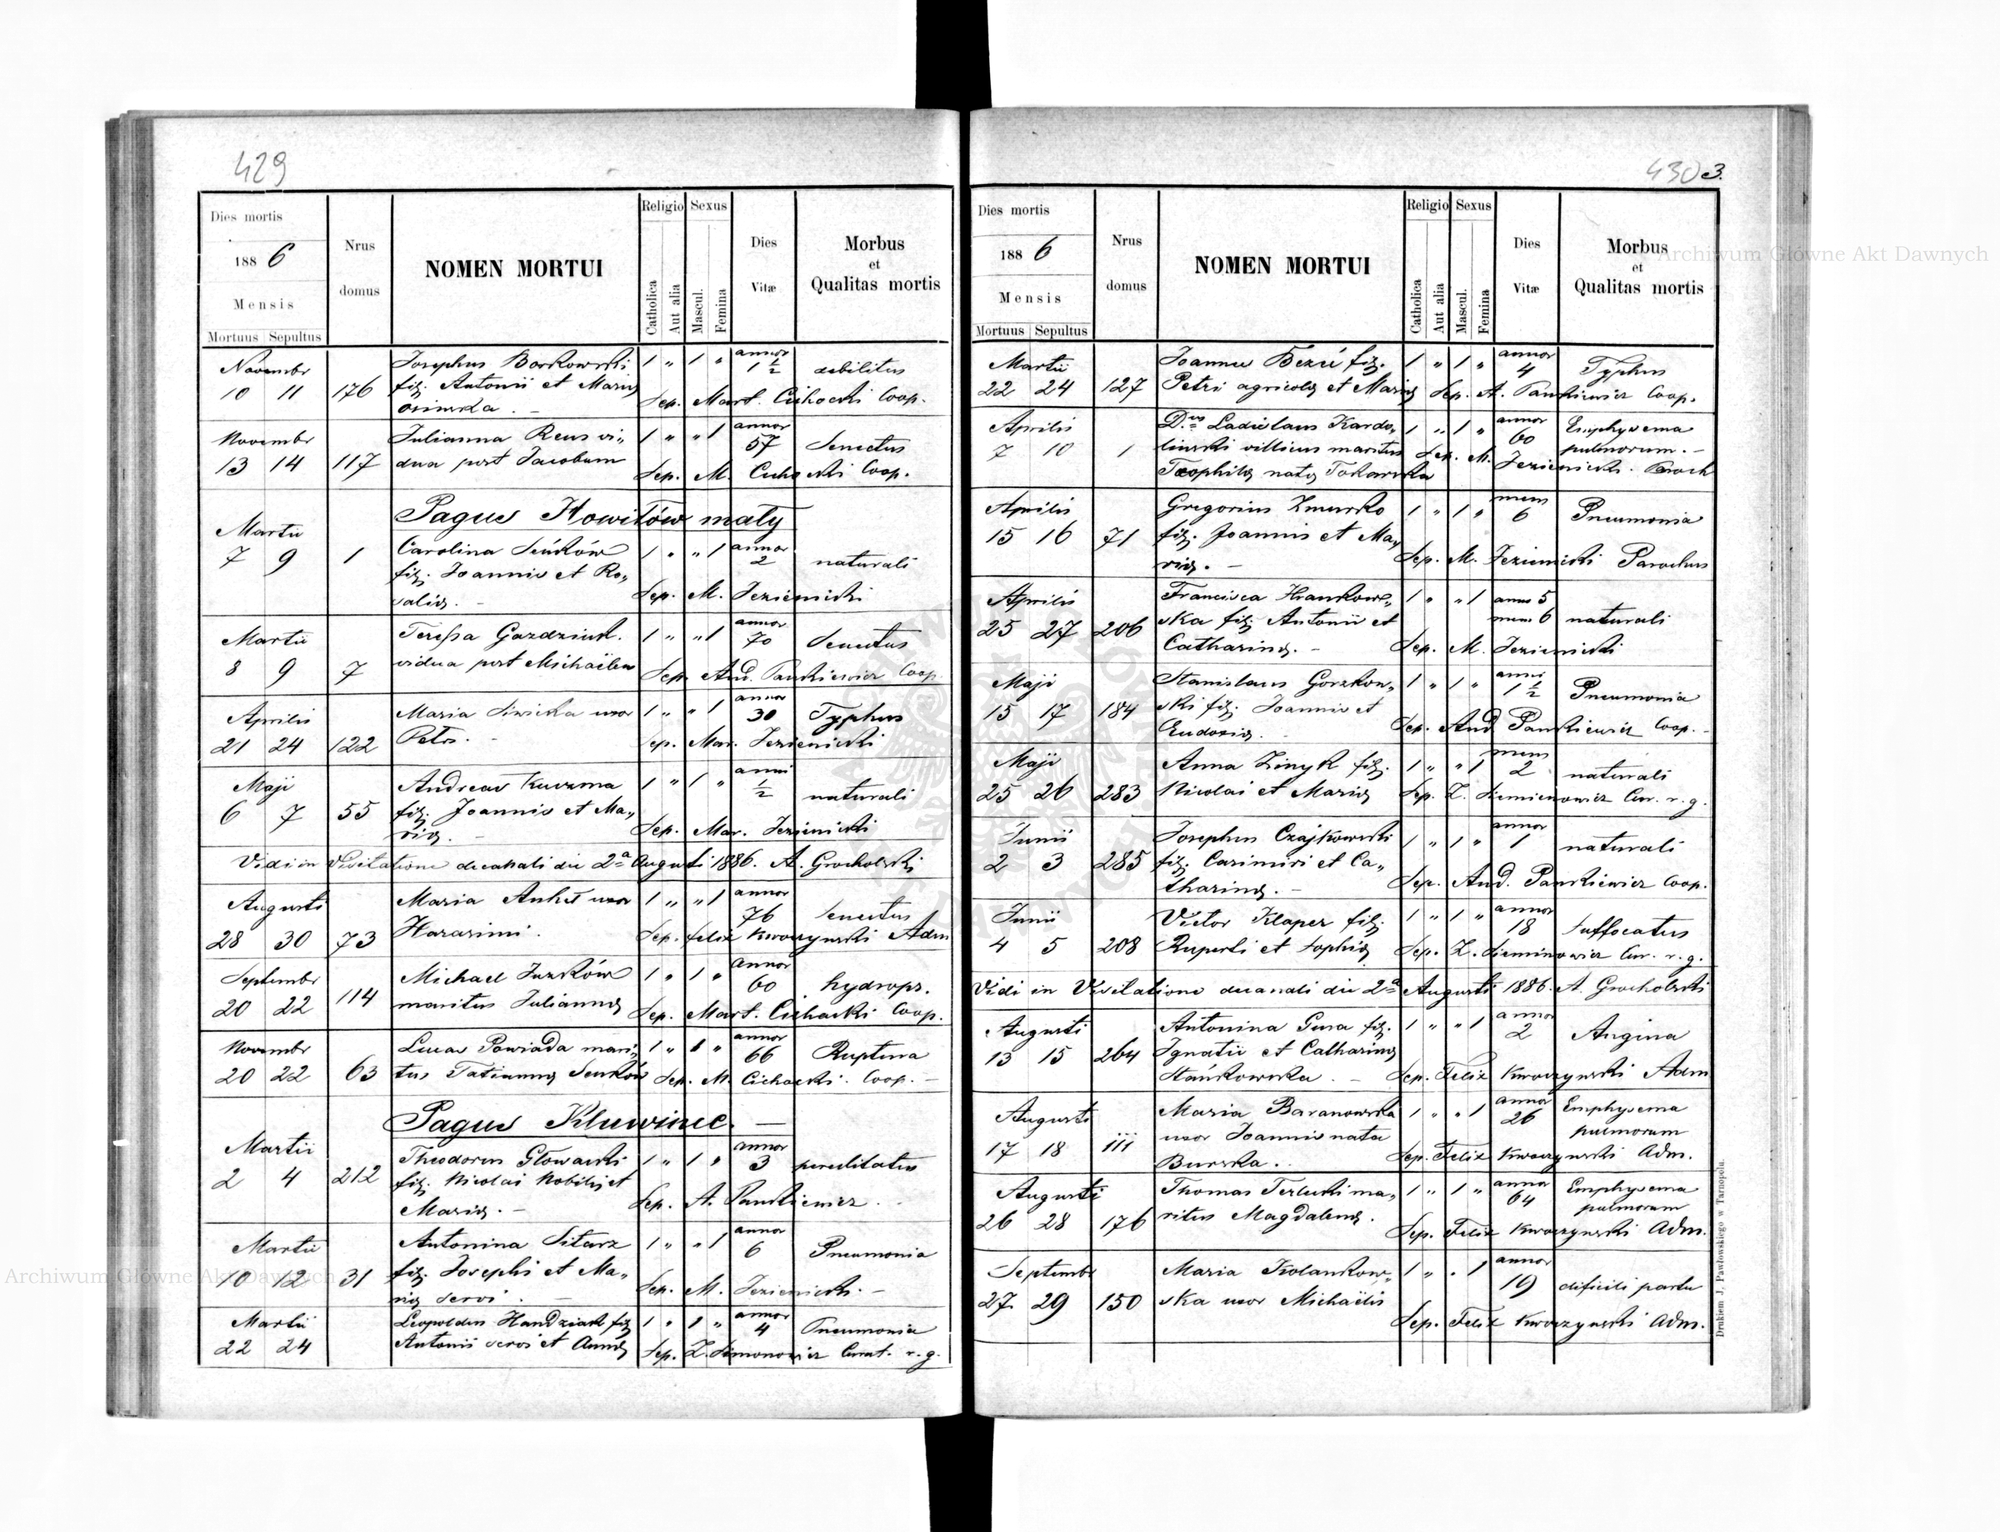 429
Dies mortis
1886
Mensis
Mortuus Sepultus
Nrus domus
NOMEN MORTUI
Religio
Catholica
Aut alia
Sexus
Mascul.
Femina
Dies Vitæ
Morbus
et
Qualitas mortis
Novembr 10 11 176 Josephus Borkowski 1 " 1 " annor 1 1/2 debilitas
fil. Antonii et Maria
Osinska. - Sep. Mart. Cichocki Coop.
Novembr 13 14 117 Julianna Reus vi- 1 " " 1 annor 57 Senectus
dua post Jacobum Sep. M. Cichocki Coop.
Pagus Howiłów mały
Martii 7 9 1 Carolina Seńków 1 " " 1 annor 2 naturali
fil. Joannis et Ro-
salia. - Sep. M. Jezienicki
Martii 8 9 7 Teressa Gazdziuk. 1 " " 1 annor 70 Senectus
vidua post Michaëlem Sep. And. Pankiewicz Coop.
Aprilis 21 24 122 Maria Siwicka uxor 1 " " 1 annor 30 Typhus
Petri. - Sep. Mar. Jezienicki
Maji 6 7 55 Andreas Kuzma 1 " 1 " anni 1/2 naturali
fil. Joannis et Ma-
ria. - Sep. Mar. Jezienicki
Vidi in Visitatione decanali die 2a Augusti 1886. A. Grocholski
Augusti 28 30 73 Maria uxor 1 " " 1 annor 76 Senectus
Harasimi. Sep. Felix Kwoczynski Adm
Septembr 20 22 114 Michael Juzków 1 " 1 " annor 60 hydrops.
maritus Julianna Sep. Mart. Cichocki Coop.
Novembr 20 22 63 Lucas Powiada mari- 1 " 1 " annor 66 Ruptura
tus Tatianna Senków Sep. M. Cichocki. Coop. -
Pagus Kluwince. -
Martii 2 4 212 Theodorus Głowacki 1 " 1 " annor 3
fil. Nicolai Nobilis et
Maria. - Sep. A. Pankiewicz.
Martii 10 12 31 Antonina Sitarz 1 " " 1 annor 6 Pneumonia
fil. Josephi et Ma-
ria servi. - Sep. M. Jezienicki. -
Martii 22 24 Leopoldus Handziak fil. 1 " 1 " annor 4 Pneumonia
Antonii servi et Anna Sep. Z. Simonowicz Curat. r. g.
430 3.
Dies mortis
1886
Mensis
Mortuus Sepultus
Nrus domus
NOMEN MORTUI
Religio
Catholica
Aut alia
Sexus
Mascul.
Femina
Dies Vitæ
Morbus
et
Qualitas mortis
Martii 22 24 127 Joannes Bezú fil. 1 " 1 " annor 4 Typhus
Petri agricola et Maria Sep. A. Pankiewicz Coop.
Aprilis 7 10 1 Dnus Ladislaus Kardo- 1 " 1 " annor 60 Emphysema
linski villicus maritus pulmorum. -
Teophila nata Tokarska Sep. M. Jezienicki. Paroch
Aprilis 15 16 71 Gregorius Zmurko 1 " 1 " mens 6 Pneumonia
fil. Joannis et Ma-
ria. - Sep. M. Jezienicki Parochus
Aprilis 25 27 206 Francisca Hrankow- 1 " " 1 annor 5 mens 6 naturali
ska fil. Antonii et
Catharina. - Sep. M. Jezienicki
Maji 15 17 184 Stanislaus Gorzkow- 1 " 1 " anni 1 1/2 Pneumonia
ski fil. Joannis et
Eudoxia. Sep. And Pankiewicz Coop. -
Maji 25 26 283 Anna Zinyk fil. 1 " " 1 mens 2 naturali
Nicolai et Maria Sep. Z. Simienowicz Cur. r. g.
Junii 2 3 285 Josephus Czajkowski 1 " 1 " annor 1 naturali
fil. Casimiri et Ca-
tharina. - Sep. And. Pankiewicz Coop.
Junii 4 5 208 Victor Klaper fil. 1 " 1 " annor 18 Suffocatus
Ruperti et Sophia Sep. Z. Siemienowicz Cur. r. g.
Vidi in Visitatione decanali die 2a Augusti 1886. A. Grocholski
Augusti 13 15 264 Antonina Gura fil. 1 " " 1 annor 2 Angina
Ignatii et Catharina
Stańkowska. - Sep. Felix Kwoczynski Adm
Augusti 17 18 111 Maria Baranowska 1 " " 1 annor 26 Emphysema
uxor Joannis nata pulmorum
Burska. Sep. Felix Kwoczynski Adm.
Augusti 26 28 176 Thomas Terlecki ma- 1 " 1 " annor 64 Emphysema
ritus Magdalena. pulmorum
Sep. Felix Kwoczynski Adm.
Septembr 27 29 150 Maria Kolankow- 1 " " 1 annor 19 dificili partu
ska uxor Michaëlis
Sep. Felix Kwoczynski Adm.
Drukiem J. Pawłowskiego w Tarnopolu.
Archiwum Główne Akt Dawnych
Archiwum Główne Akt Dawnych